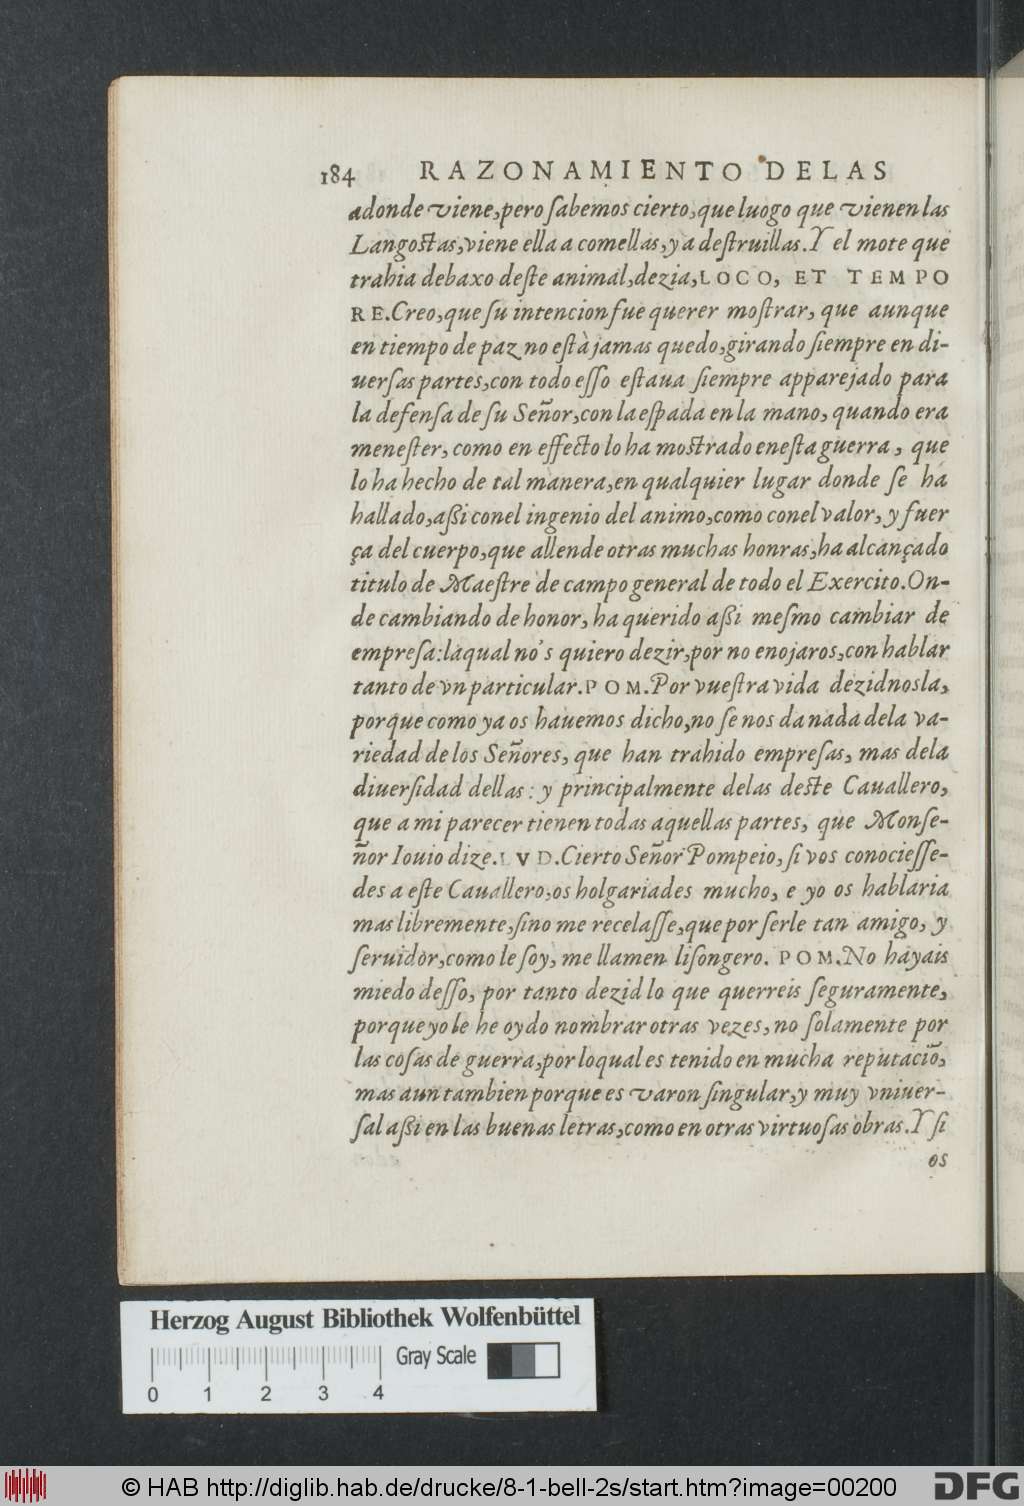 184 RAZONAMIENTO DELAS
adonde viene, pero ſabemos cierto, que luego que vienen las
Langoſtas, viene ella a comellas, y a deſtruillas. Y el mote que
trahia debaxo deſte animal, dezia, LOCO, ET TEMPO
RE. Creo, que ſu intencion fue querer moſtrar, que aunque
en tiempo de paz no eſtà jamas quedo, girando ſiempre en di-
uerſas partes, con todo eſſo eſtaua ſiempre apparejado para
la defenſa de ſu Señor, con la eſpada en la mano, quando era
meneſter, como en effecto lo ha moſtrado eneſta guerra, que
lo ha hecho de tal manera, en qualquier lugar donde ſe ha
hallado, aßi conel ingenio del animo, como conel valor, y fuer
ça del cuerpo, que allende otras muchas honras, ha alcançado
titulo de Maeſtre de campo general de todo el Exercito. On-
de cambiando de honor, ha querido aßi meſmo cambiar de
empreſa: la qual no's quiero dezir, por no enojaros, con hablar
tanto de vn particular. POM. Por vueſtra vida dezidnosla,
porque como ya os hauemos dicho, no ſe nos da nada dela va-
riedad de los Señores, que han trahido empreſas, mas dela
diuerſidad dellas: y principalmente delas deſte Cauallero,
que a mi parecer tienen todas aquellas partes, que Monſe-
ñor Iouio dize. LVD. Cierto Señor Pompeio, ſi vos conocieſſe-
des a eſte Cauallero, os holgariades mucho, e yo os hablaria
mas libremente, ſino me recelaſſe, que por ſerle tan amigo, y
ſeruidor, como le ſoy, me llamen liſongero. POM. No hayais
miedo deſſo, por tanto dezid lo que querreis ſeguramente,
porque yo le he oydo nombrar otras vezes, no ſolamente por
las coſas de guerra, por loqual es tenido en mucha reputaciõ,
mas aun tambien porque es varon ſingular, y muy vniuer-
ſal aßi en las buenas letras, como en otras virtuoſas obras. Y ſi
os
Herzog August Bibliothek Wolfenbüttel
Gray Scale
0 1 2 3 4
© HAB http://diglib.hab.de/drucke/8-1-bell-2s/start.htm?image=00200
DFG